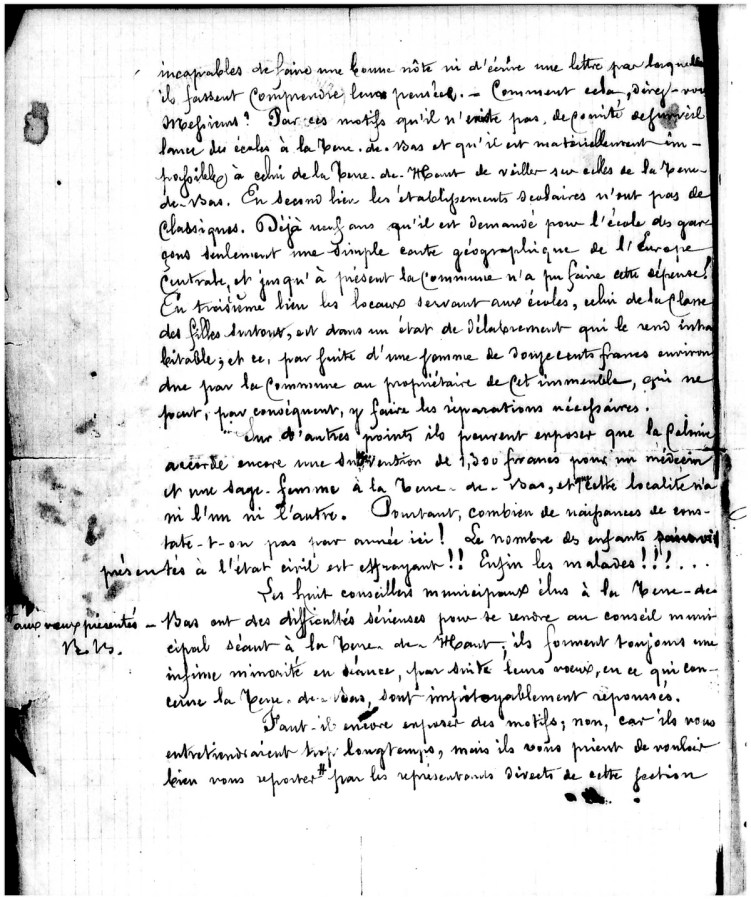 incapables de faire une bonne nôte ni d'écrire une lettre par laquelle
ils fassent comprendre leur pensée. – Comment cela, direz-vous
Messieurs? Par ces motifs qu'il n'existe pas de Comité de surveil
lance des écoles à la Terre-de-Bas et qu'il est matériellement im-
possible à celui de la Terre-de-Haut de veiller sur celles de la Terre-
de-Bas. En second lieu les établissements scolaires n'ont pas de
Classiques. Déjà neuf ans qu'il est demandé pour l'école des gar
çons seulement une simple carte géographique de l'Europe
Centrale, et jusqu'à présent la Commune n'a pu faire cette dépense!
En troisième lieu les locaux servant aux écoles, celui de la Classe
des filles surtout, est dans un état de délabrement qui le rend inha
bitable; et ce, par suite d'une somme de douze cents francs environ
due par la Commune au propriétaire de cet immeuble, qui ne
peut, par conséquent, y faire les réparations nécessaires.
Sur d'autres points ils peuvent exposer que la Colonie
accorde encore une subvention de 1,300 francs pour un médecin
et une sage-femme à la Terre-de-Bas, et que cette localité n'a
ni l'un ni l'autre. Pourtant, combien de naissances ne cons-
tate-t-on pas par année ici! Le nombre des enfants
présentés à l'état civil est effrayant!! Enfin les malades!!!...
Les huit conseillers municipaux élus à la Terre-de-
Bas ont des difficultés sérieuses pour se rendre au conseil muni
cipal séant à la Terre-de-Haut; ils forment toujours une
infime minorité en séance, par suite leurs vœux, en ce qui con-
cerne la Terre-de-Bas, sont impitoyablement repoussés.
Faut-il encore exposer des motifs; non, car ils vous
entretiendraient trop longtemps, mais ils vous prient de vouloir
bien vous reporter # par les représentants directs de cette section
# aux vœux présentés –
B.B.